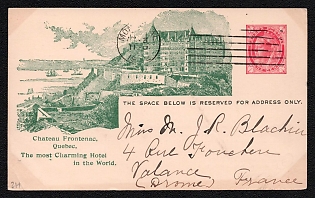 THE SPACE BELOW IS RESERVED FOR ADDRESS ONLY.
Chateau Frontenac,
Quebec,
The most Charming Hotel
in the World.
Miss M. J. R. Blachin
4 Rue
Valance
(Drome) France